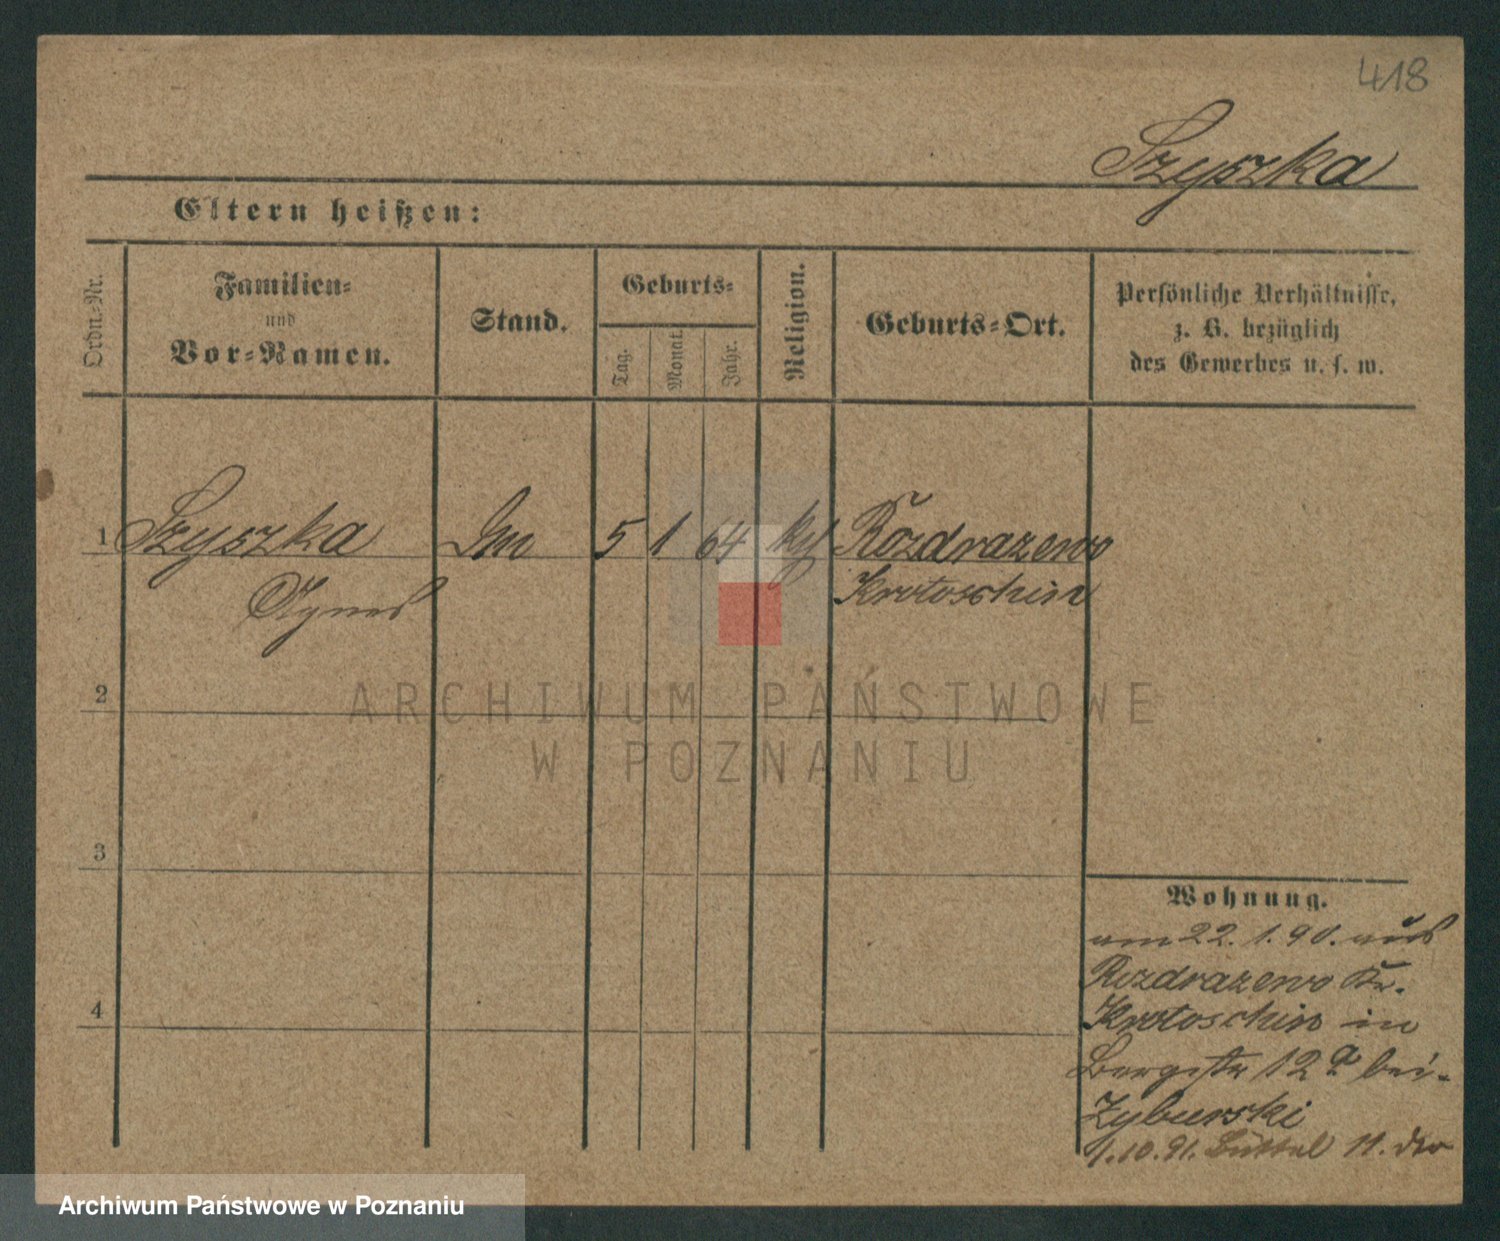 418
Szyszka
Eltern heißen:
Ordn.-Nr.
Familien-
und
Vor-Namen.
Stand.
Geburts-
Tag.
Monat.
Jahr.
Religion.
Geburts-Ort.
Persönliche Verhältnisse,
z. B. bezüglich
des Gewerbes u. s. w.
1 Szyszka 5 1 64 Rozdrazewo
Agnes Krotoschin
2
3
4
ARCHIWUM PAŃSTWOWE
W POZNANIU
Wohnung.
am 22. 1. 90. aus
Rozdrazewo Kr.
Krotoschin in
Bergstr 12a bei
Zyburski
1.10.91. Büttel 11.
Archiwum Państwowe w Poznaniu